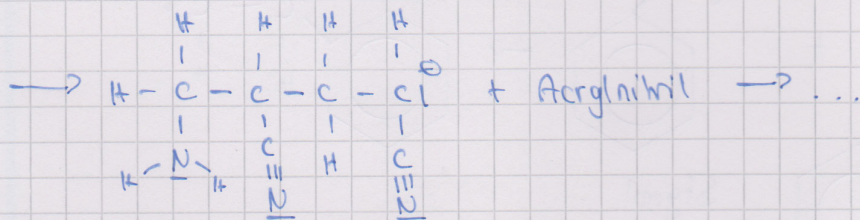 H H H H
⟶ H – C – C – C – C| ⊖ + Acrylnitril ⟶ ...
N C H C
H H N N